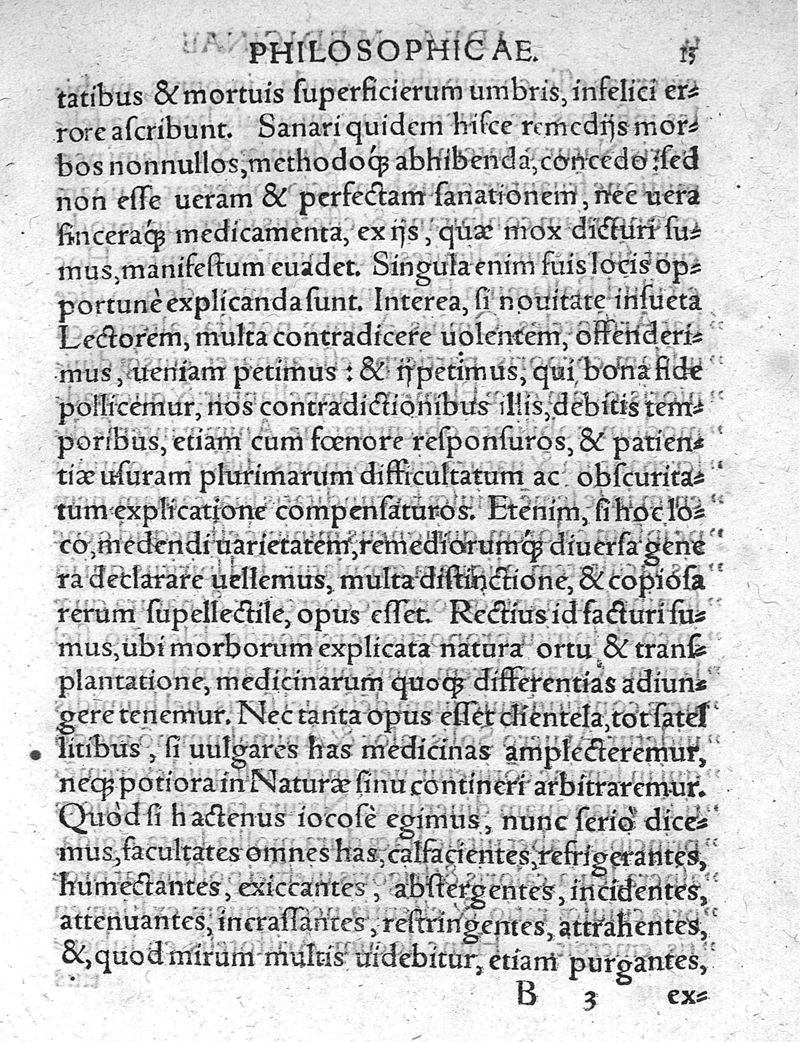 PHILOSOPHICAE. 15
tatibus & mortuis ſuperficierum umbris, infelici er⸗
rore aſcribunt. Sanari quidem hiſce remedijs mor⸗
bos nonnullos, methodoq́; abhibenda, concedo: ſed
non eſſe ueram & perfectam ſanationem, nec uera
ſinceraq́; medicamenta, ex ijs, quæ mox dicturi ſu⸗
mus, manifeſtum euadet. Singula enim ſuis locis op⸗
portunè explicanda ſunt. Interea, ſi nouitate inſueta
Lectorem, multa contradicere uolentem, offenderi⸗
mus, ueniam petimus: & ij petimus, qui bona fide
pollicemur, nos contradictionibus illis, debitis tem⸗
poribus, etiam cum fœnore reſponſuros, & patien⸗
tiæ uſuram plurimarum difficultatum ac obſcurita⸗
tum explicatione compenſaturos. Etenim, ſi hoc lo⸗
co, medendi uarietatem, remediorumq́; diuerſa gene
ra declarare uellemus, multa diſtinctione, & copioſa
rerum ſupellectile, opus eſſet. Rectius id facturi ſu⸗
mus, ubi morborum explicata natura ortu & tranſ⸗
plantatione, medicinarum quoq; differentias adiun⸗
gere tenemur. Nec tanta opus eſſet clientela, tot ſatel
litibus, ſi uulgares has medicinas amplecteremur,
neq; potiora in Naturæ ſinu contineri arbitraremur.
Quòd ſi hactenus iocoſè egimus, nunc ſeriò dice⸗
mus, facultates omnes has, calfacientes, refrigerantes,
humectantes, exiccantes, abſtergentes, incidentes,
attenuantes, incraſſantes, reſtringentes, attrahentes,
&, quod mirum multis uidebitur, etiam purgantes,
B 3 ex⸗